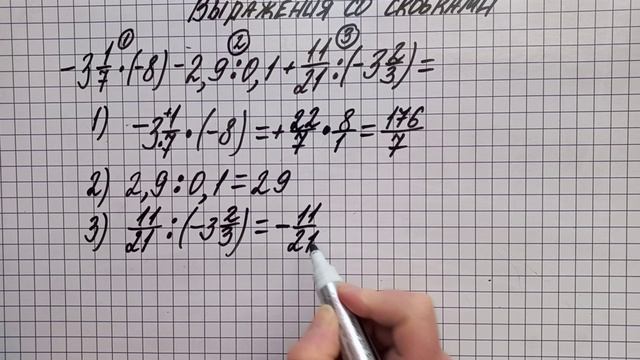 Выражения со скобками
① ② ③
-3 1/7 · (-8) - 2,9 : 0,1 + 11/21 : (-3 2/3) =
1) -3 1/7 · (-8) = + 22/7 · 8/1 = 176/7
2) 2,9 : 0,1 = 29
3) 11/21 : (-3 2/3) = - 11/21